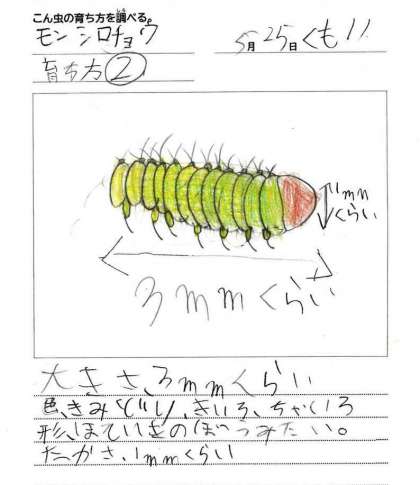 こん虫の育ち方を調べる。
モンシロチョウ
5月25日くもり
育ち方②
1mm
くらい
3mmくらい
大きさ、3mmくらい
色、きみどり、きいろ、ちゃいろ
形、ほていをのぼうみたい。
たかさ、1mmくらい